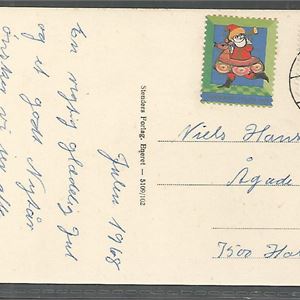 En rigtig glædelig Jul
og et godt Nytår
ønskes I av alle
Julen 1968
Stenders Forlag. Eneret — 5109/102
Niels Hans
Ågade
7500 Ho